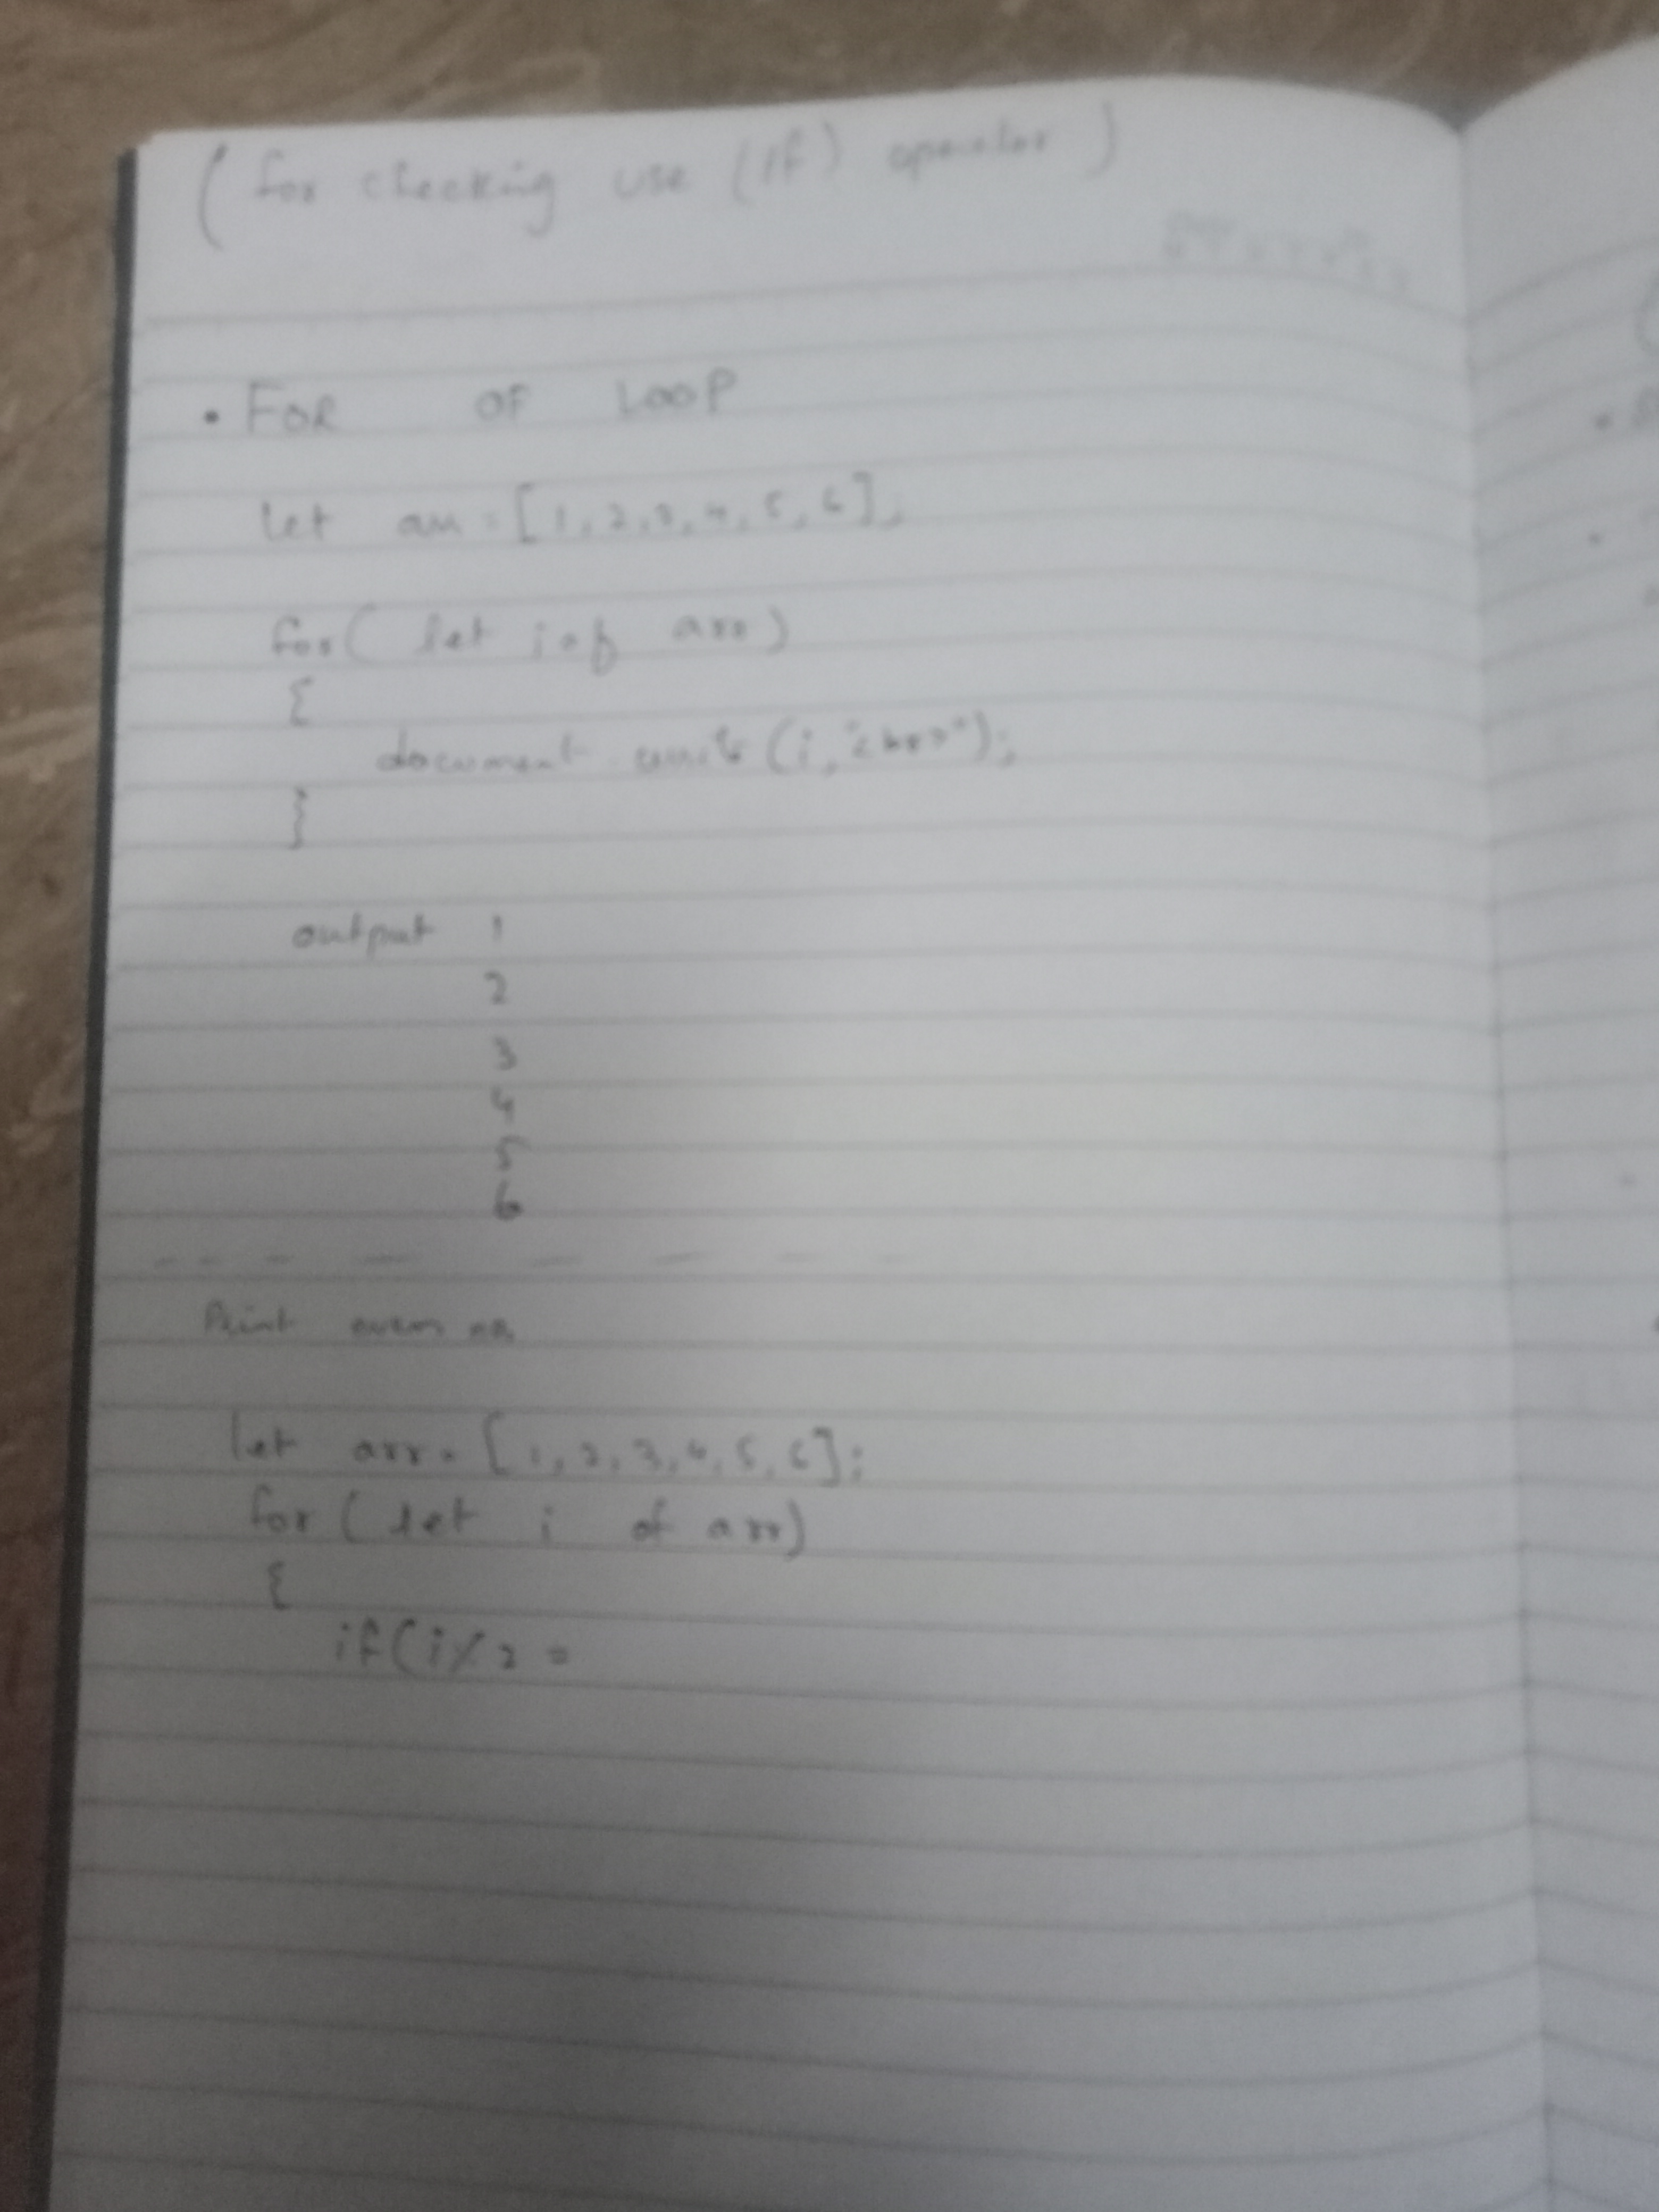 (for checking use (if) operator)
• FOR OF LOOP
let arr = [1, 2, 3, 4, 5, 6];
for( let i of arr)
{
document write (i, "<br>");
}
output 1
2
3
4
5
6
Print even no.
let arr = [1, 2, 3, 4, 5, 6];
for ( let i of arr)
{
if(i%2 =